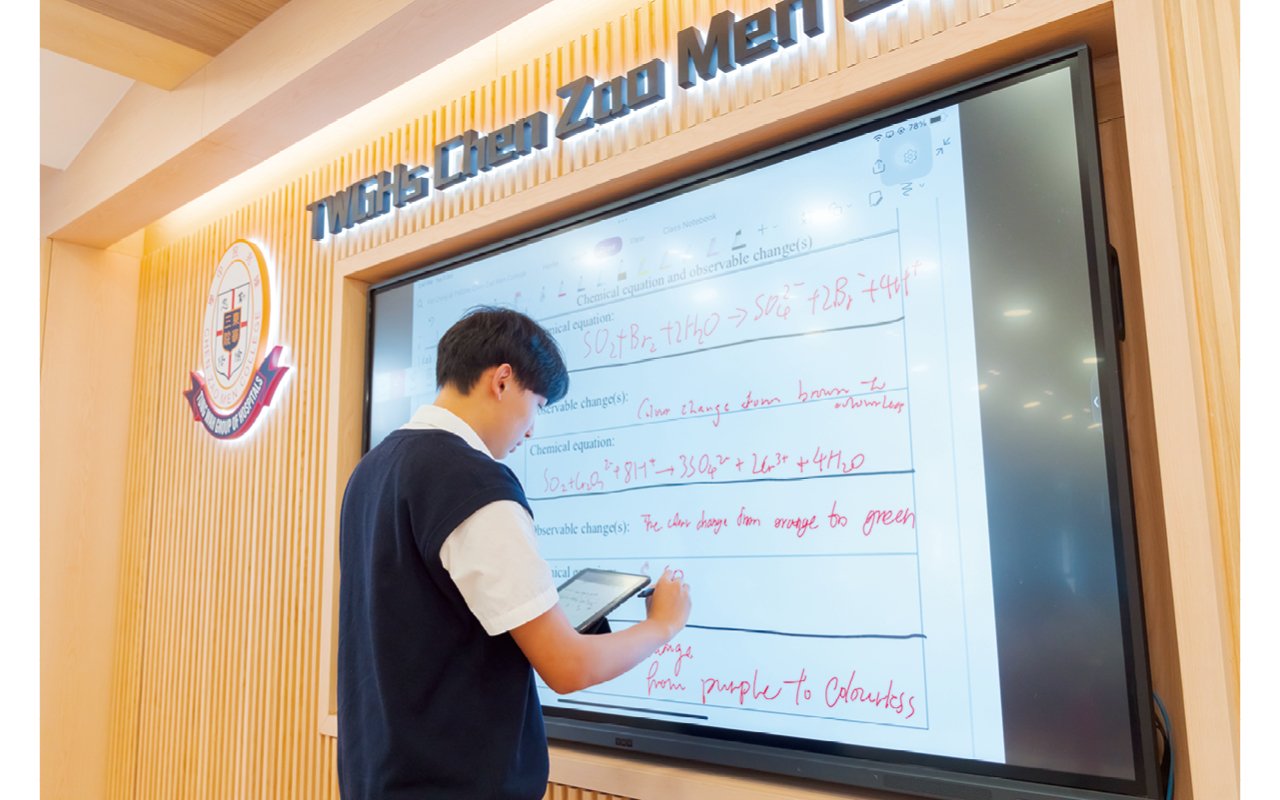 TWGHs Chen Zao Men
CHEN ZAO MEN COLLEGE
TUNG WAH GROUP OF HOSPITALS
78%
View
Class Notebook
Home
Chemical equation and observable change(s)
mical equation:
SO₂+Br₂+2H₂O → SO₄²⁻+2Br⁻+4H⁺
bservable change(s): Colour change from brown to
colourless
Chemical equation:
SO₂+Cr₂O₇²⁻+8H⁺→3SO₄²⁻+2Cr³⁺+4H₂O
Observable change(s): The colour change from orange to green
from purple to colourless